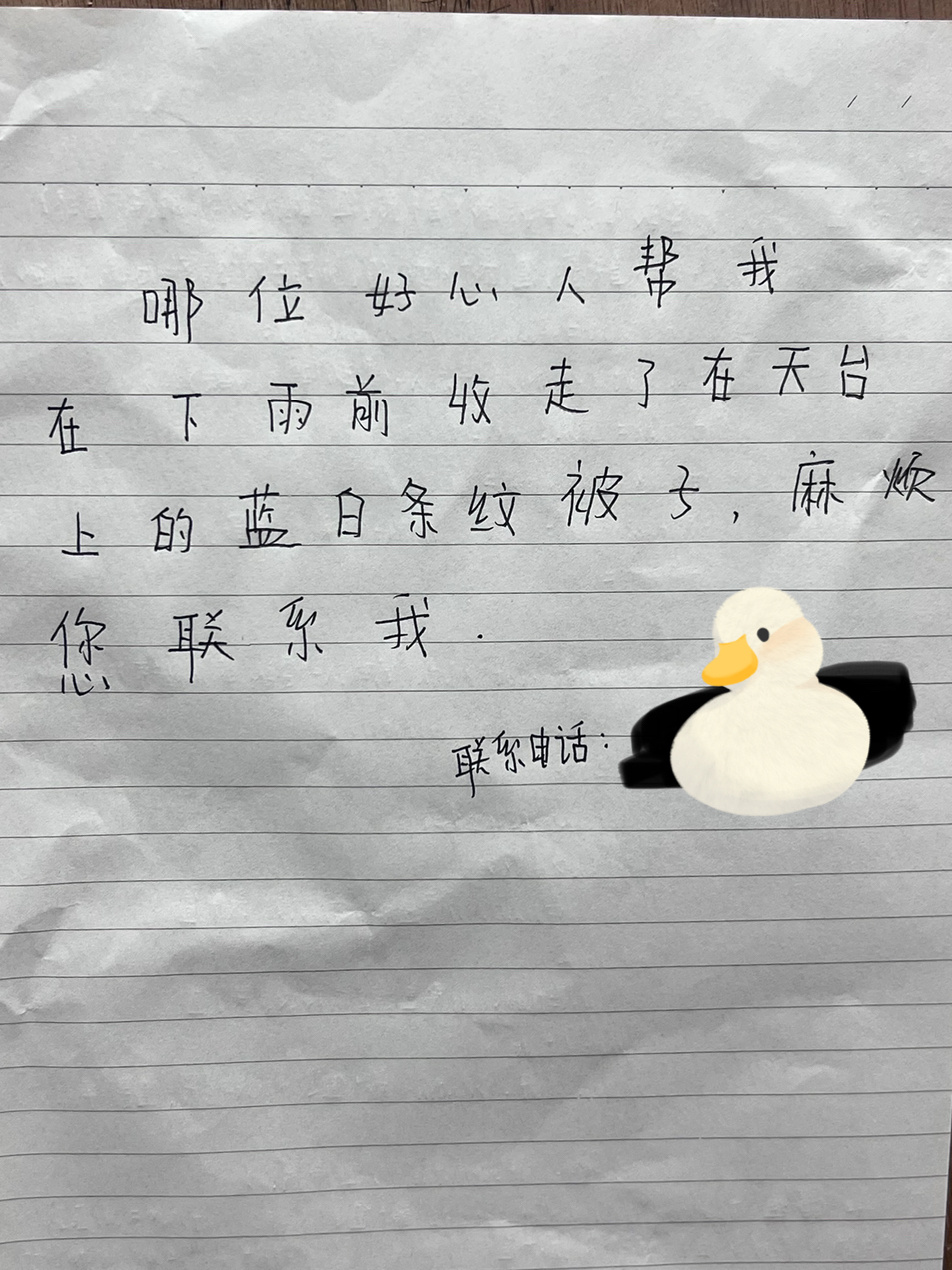 哪位好心人帮我
在下雨前收走了在天台
上的蓝白条纹被子，麻烦
您联系我.
联系电话：